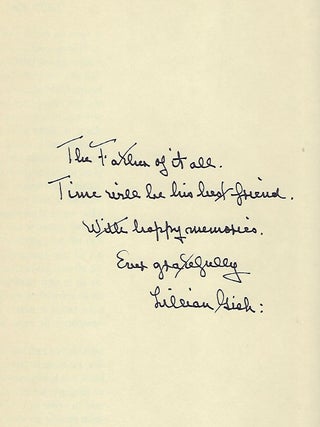 The Father of it all.
Time will be his best friend.
With happy memories.
Ever gratefully
Lillian Gish: